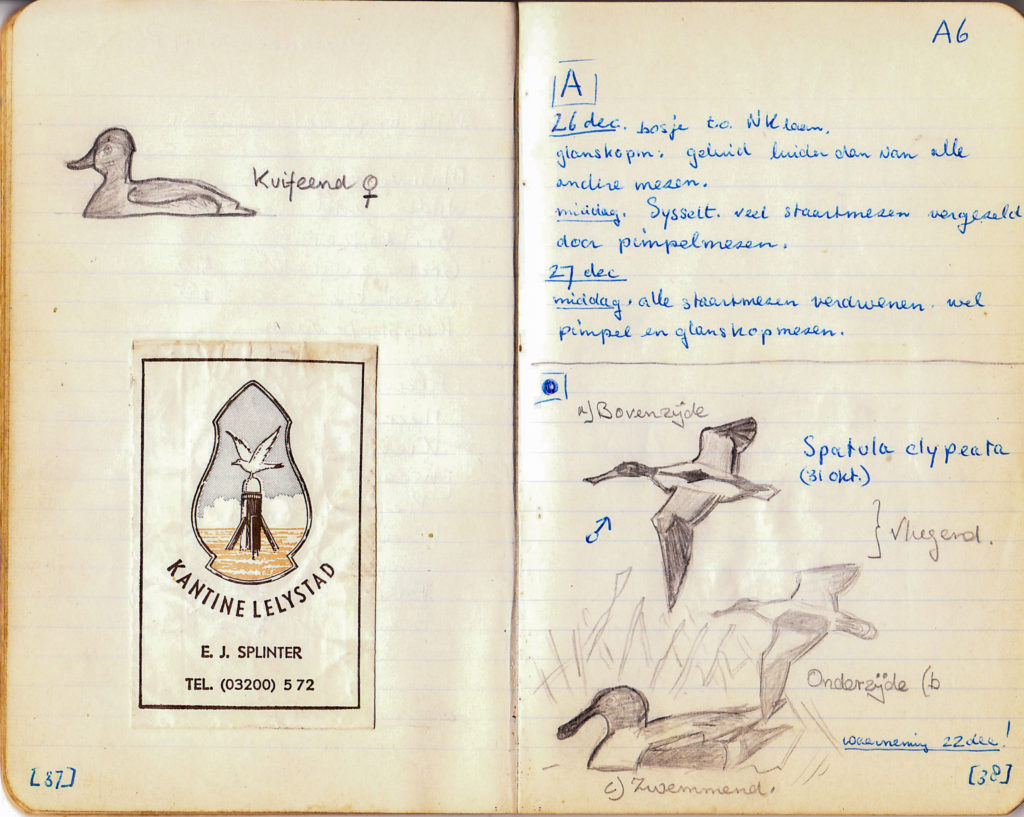 Kuifeend ♀
KANTINE LELYSTAD
E. J. SPLINTER
TEL. (03200) 572
[37]
A6
A
26 dec. bosje t.o.
glanskopm: geluid luider dan van alle
andere mezen.
middag. Sysselt. veel staartmezen vergezeld
door pimpelmezen.
27 dec
middag. alle staartmezen verdwenen. wel
pimpel en glanskopmezen.
a) Bovenzijde
Spatula clypeata
(31 okt.)
♂
} Vliegend.
Onderzijde (b
waarneming 22 dec!
c) Zwemmend.
[38]